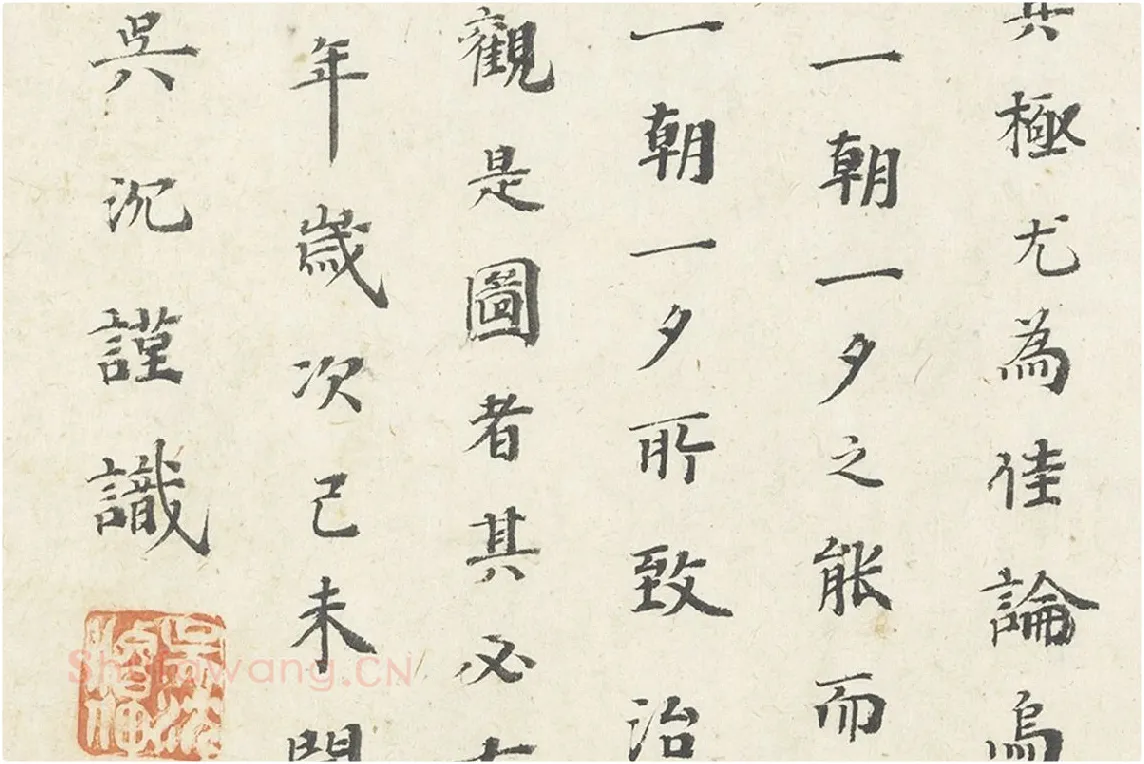 其極尤為佳論烏
一朝一夕之能而
一朝一夕所致治
觀是圖者其必有
年歲次己未閏
吳沉謹識
Shufawang.CN